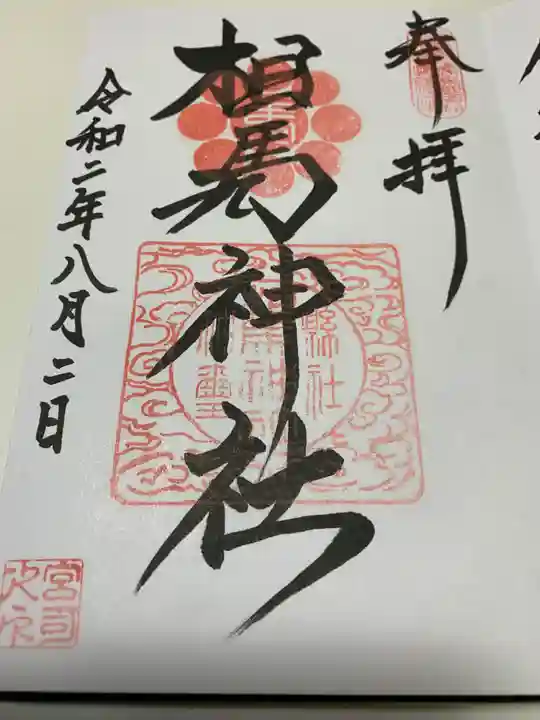 奉拝
相馬神社
令和二年八月二日
宮司